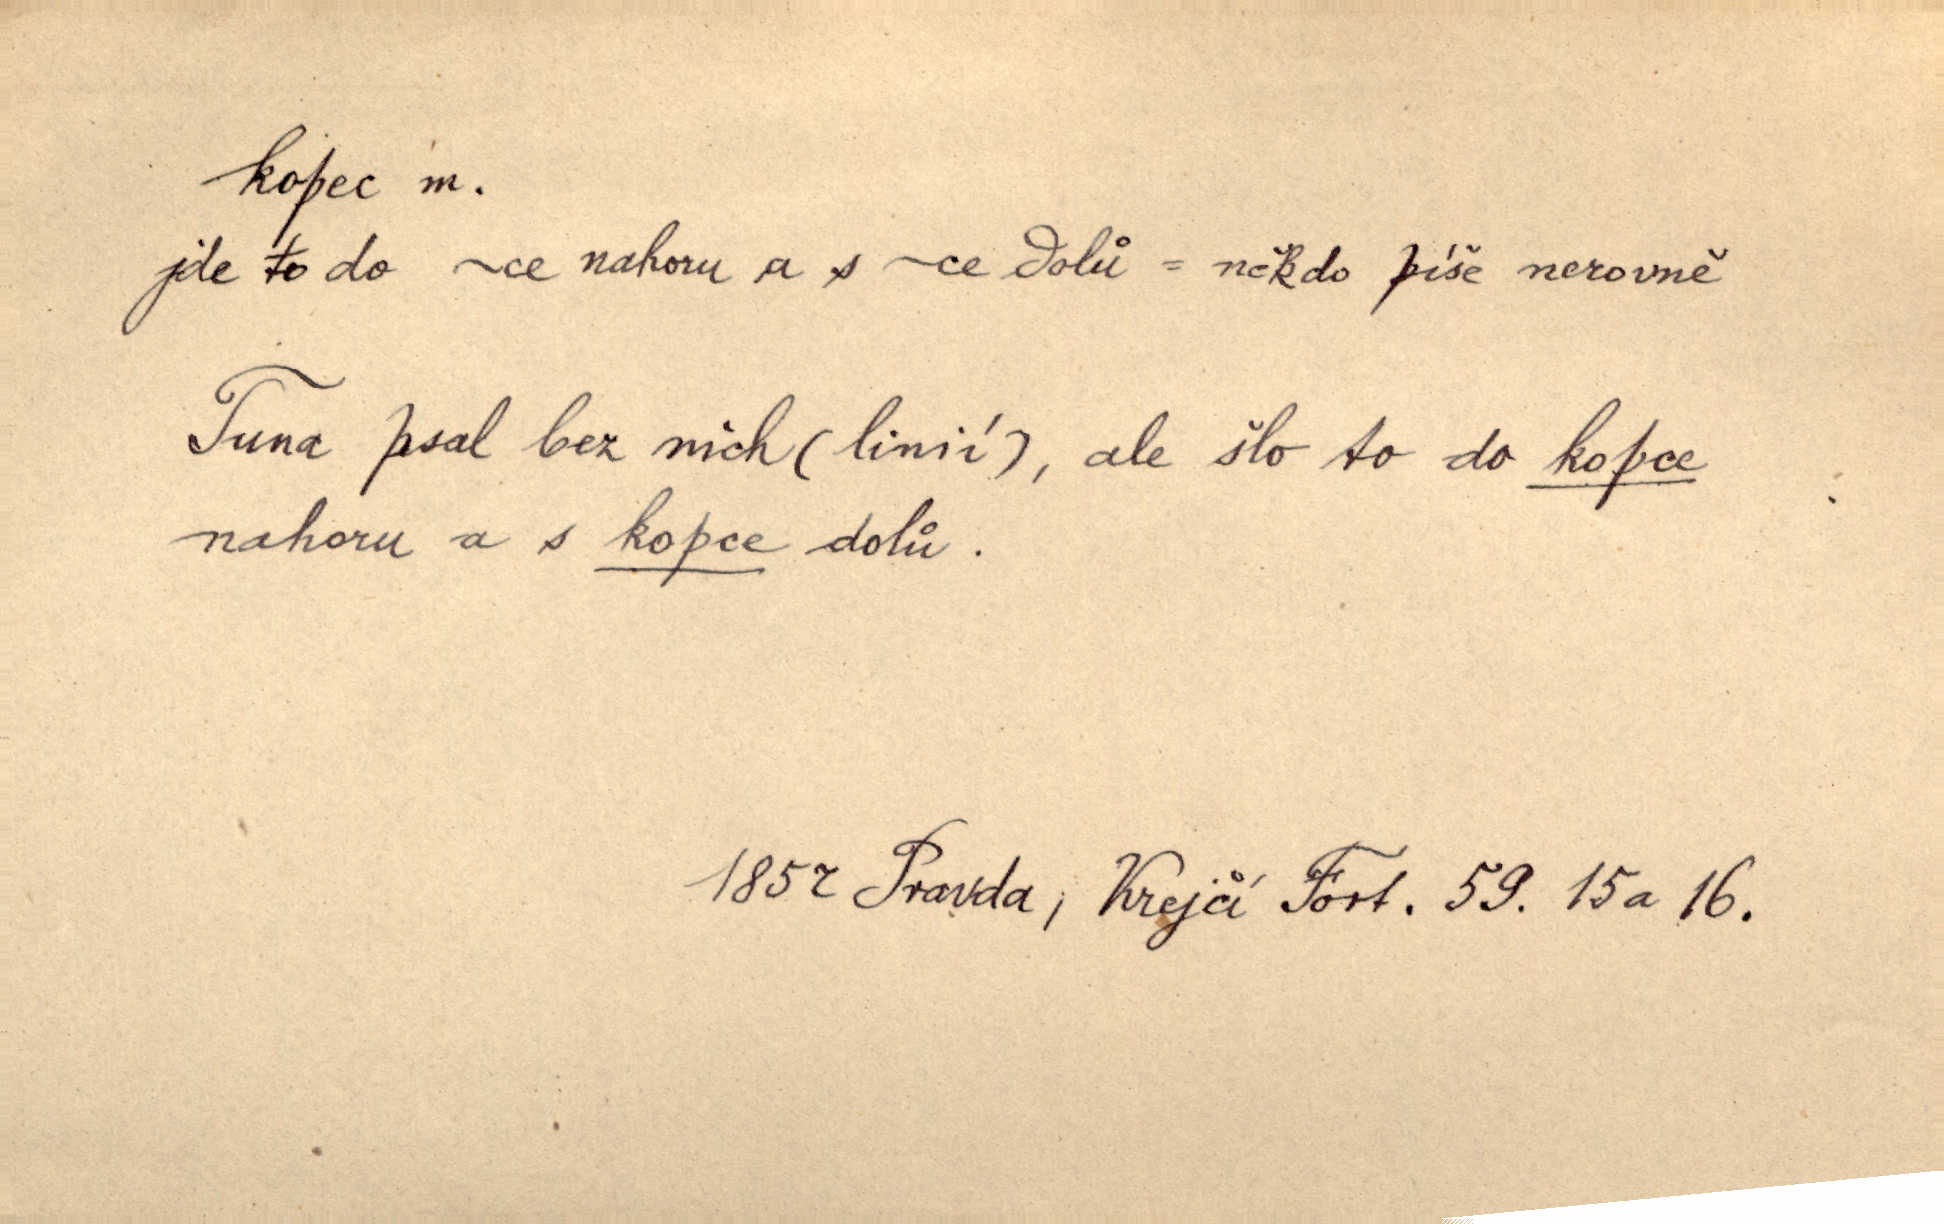 kopec m.
jde to do ~ce nahoru a s ~ce dolů = někdo píše nerovně
Tuna psal bez nich (linií), ale šlo to do kopce
nahoru a s kopce dolů.
1852 Pravda, Krejčí Fort. 59. 15 a 16.